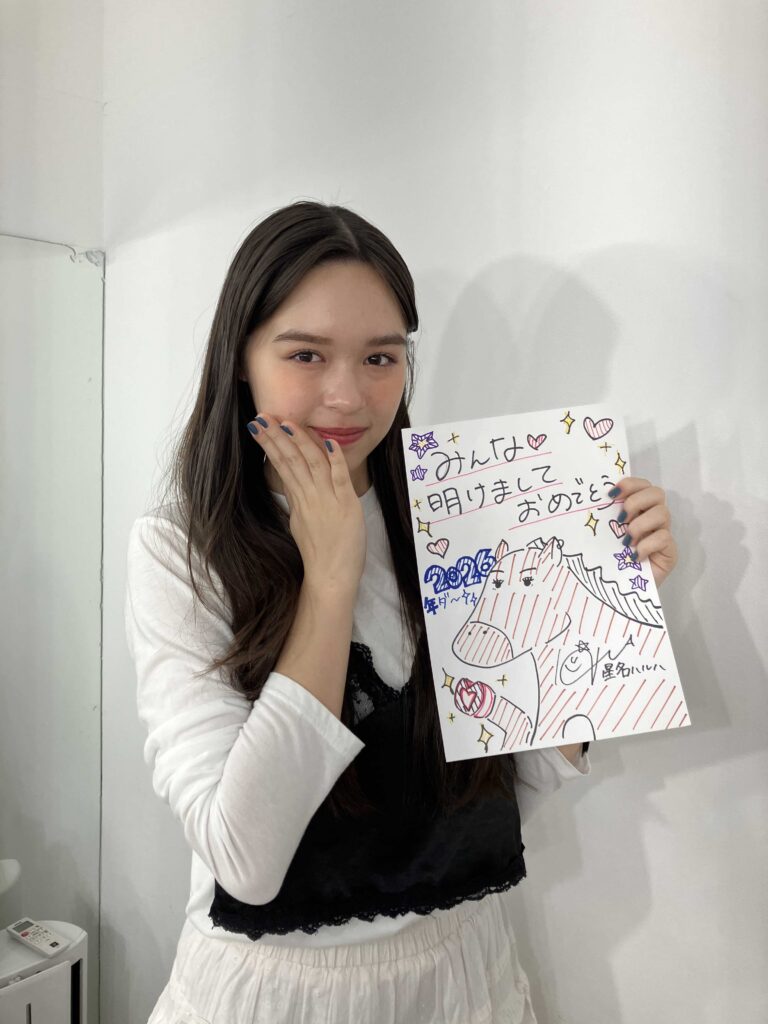 みんな
明けまして
おめでとう
2026
年ダ〜
星名ハルハ